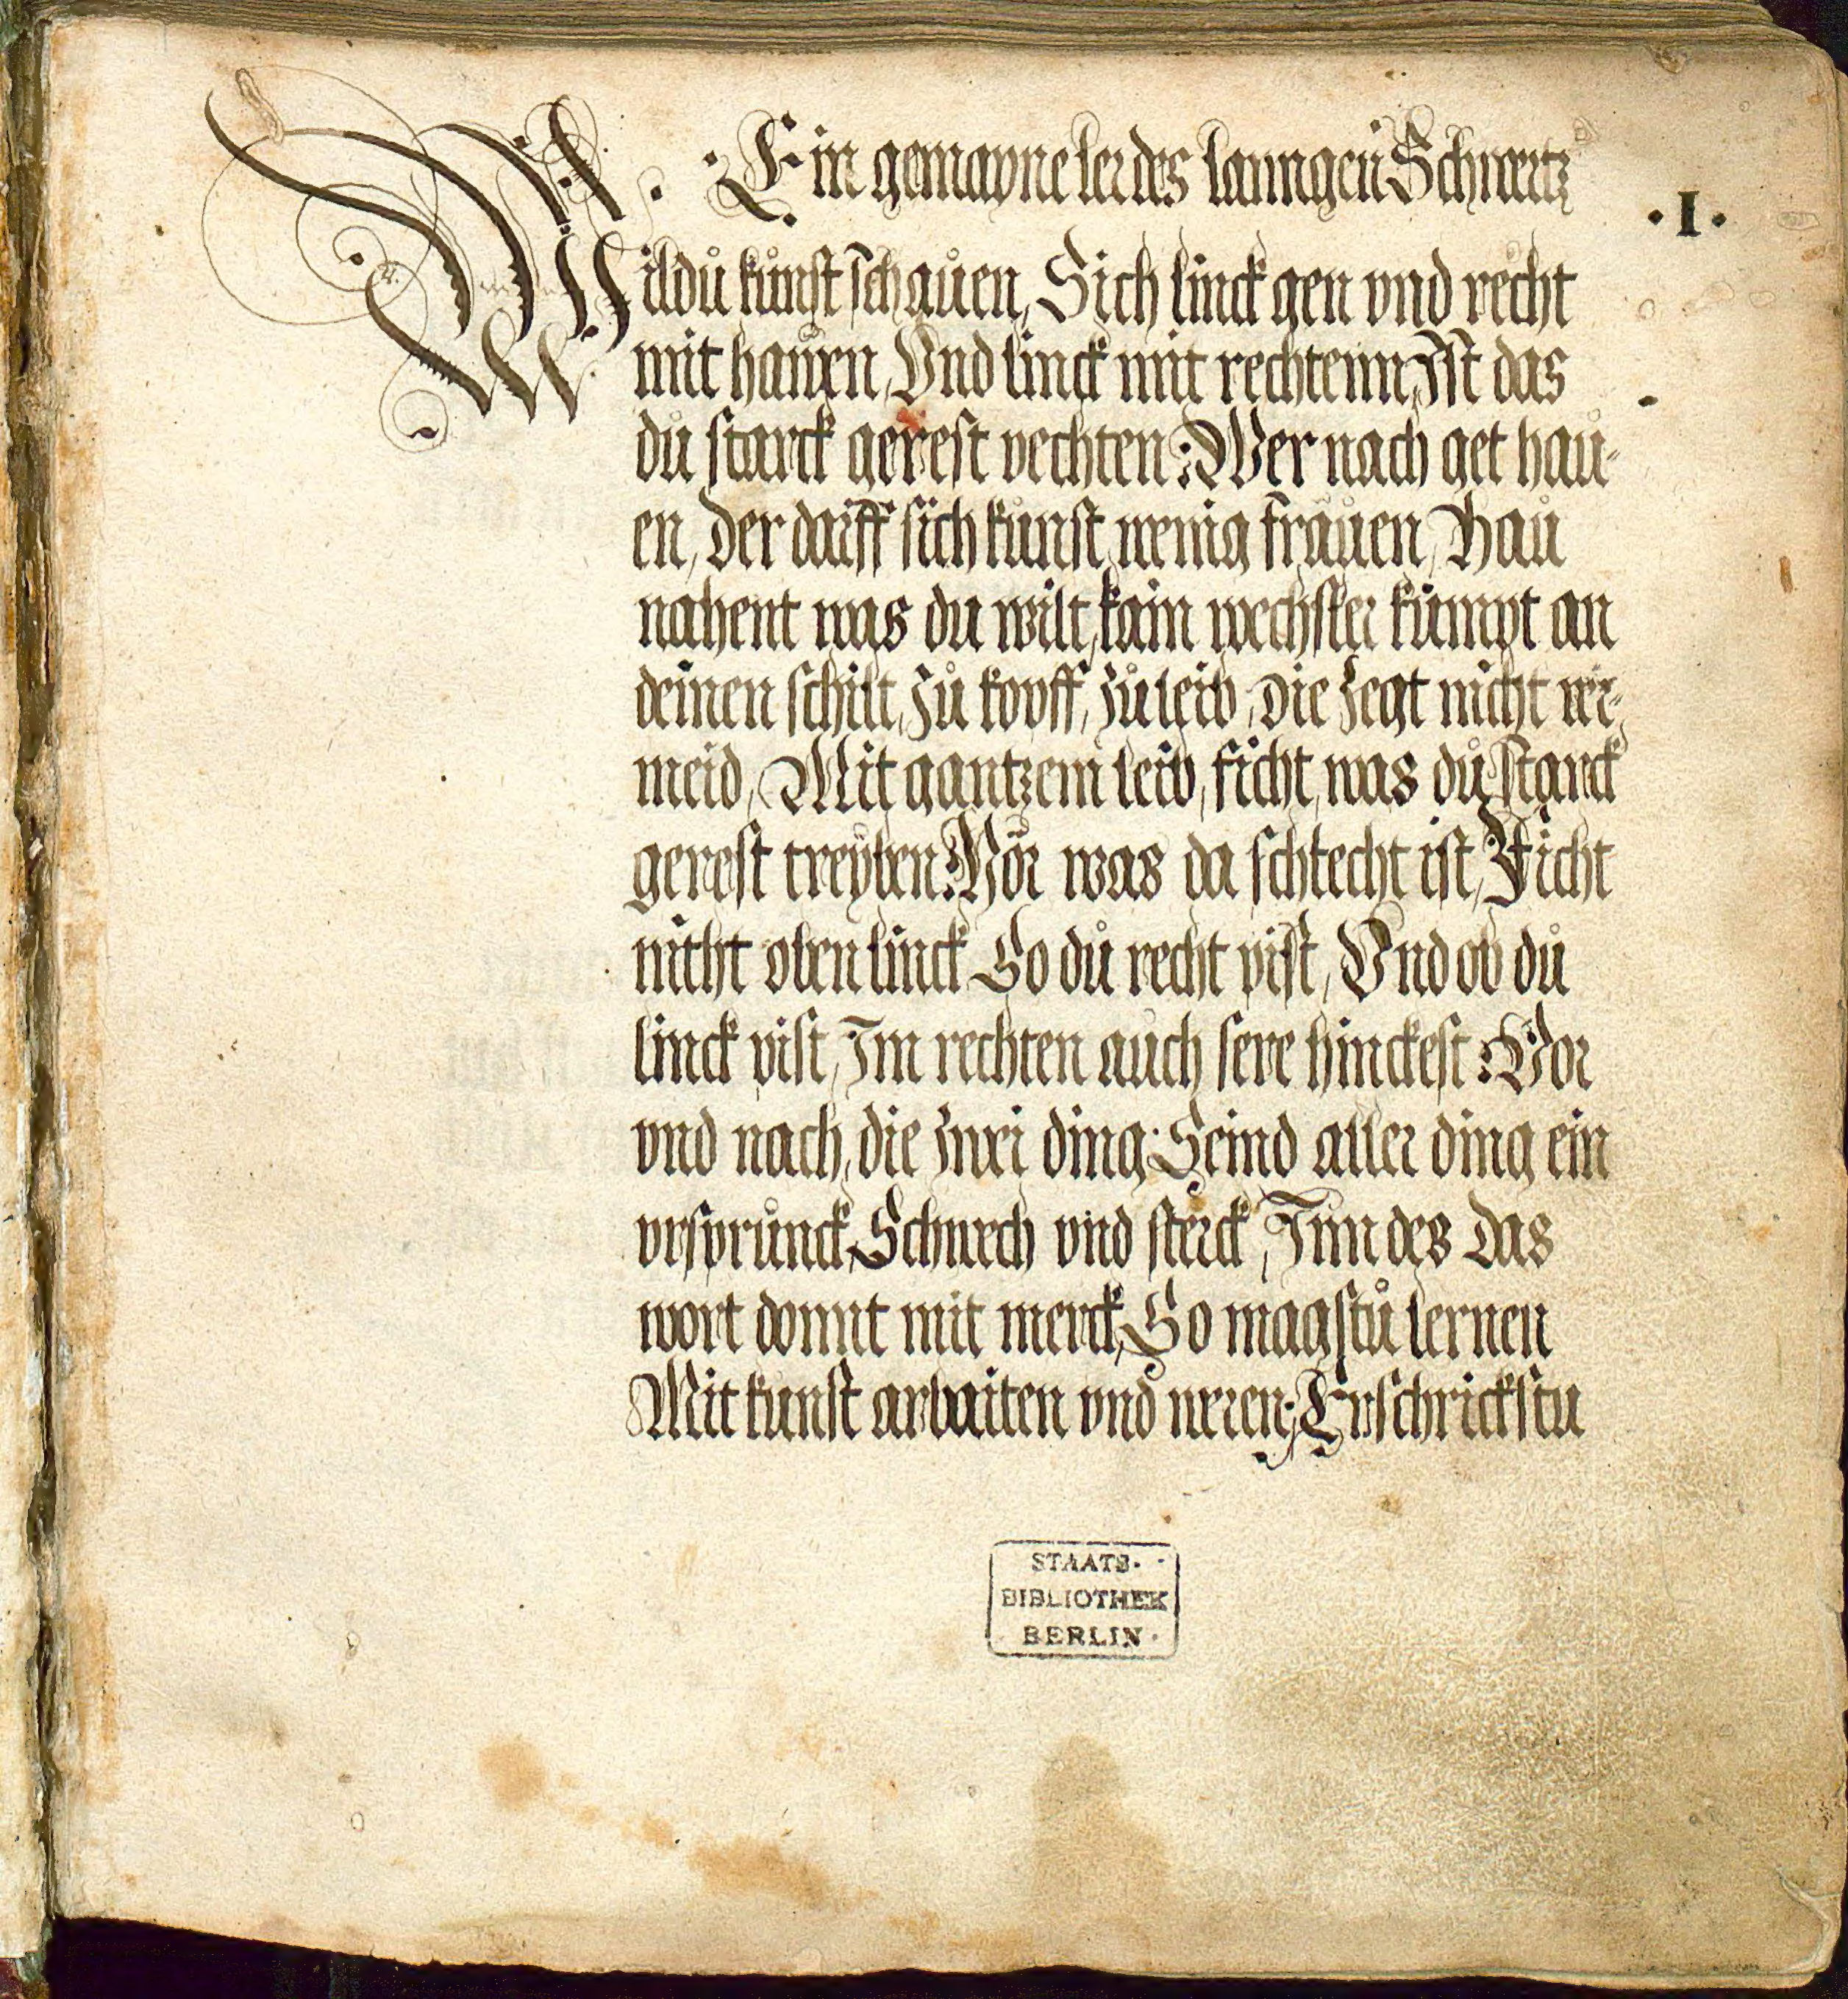 Ein gemayne ler des lanngen Schwertz
·I·
Wildu kůnst schauen, Sich linck gen vnd recht
mit hauen, Vnd linck mit rechtenn, Ist das
dů starck gerest vechten: Wer nach get hau-
en, Der darff sich kůnst wenig frauen, Hau
nahent was du wilt, kain wechsler kůmpt an
deinen schilt, Zů kopff, Zů leib, Die Zegt nicht ver-
meid, Mit gantzem leib, ficht, was dů starck
gerest treyben: Hör was da schlecht ist, Ficht
nicht oben linck So dů recht pist, Vnd ob dů
linck pist, Im rechten auch sere hinckest: Vor
vnd nach, die zwei ding: Seind aller ding ein
vrsprůnck, Schwech vnd sterck, Inn des Das
wort domit mit merck, So magstů lernen
Mit kůnst arbaiten vnd weren: Erschrickstu
STAATS-
BIBLIOTHEK
BERLIN